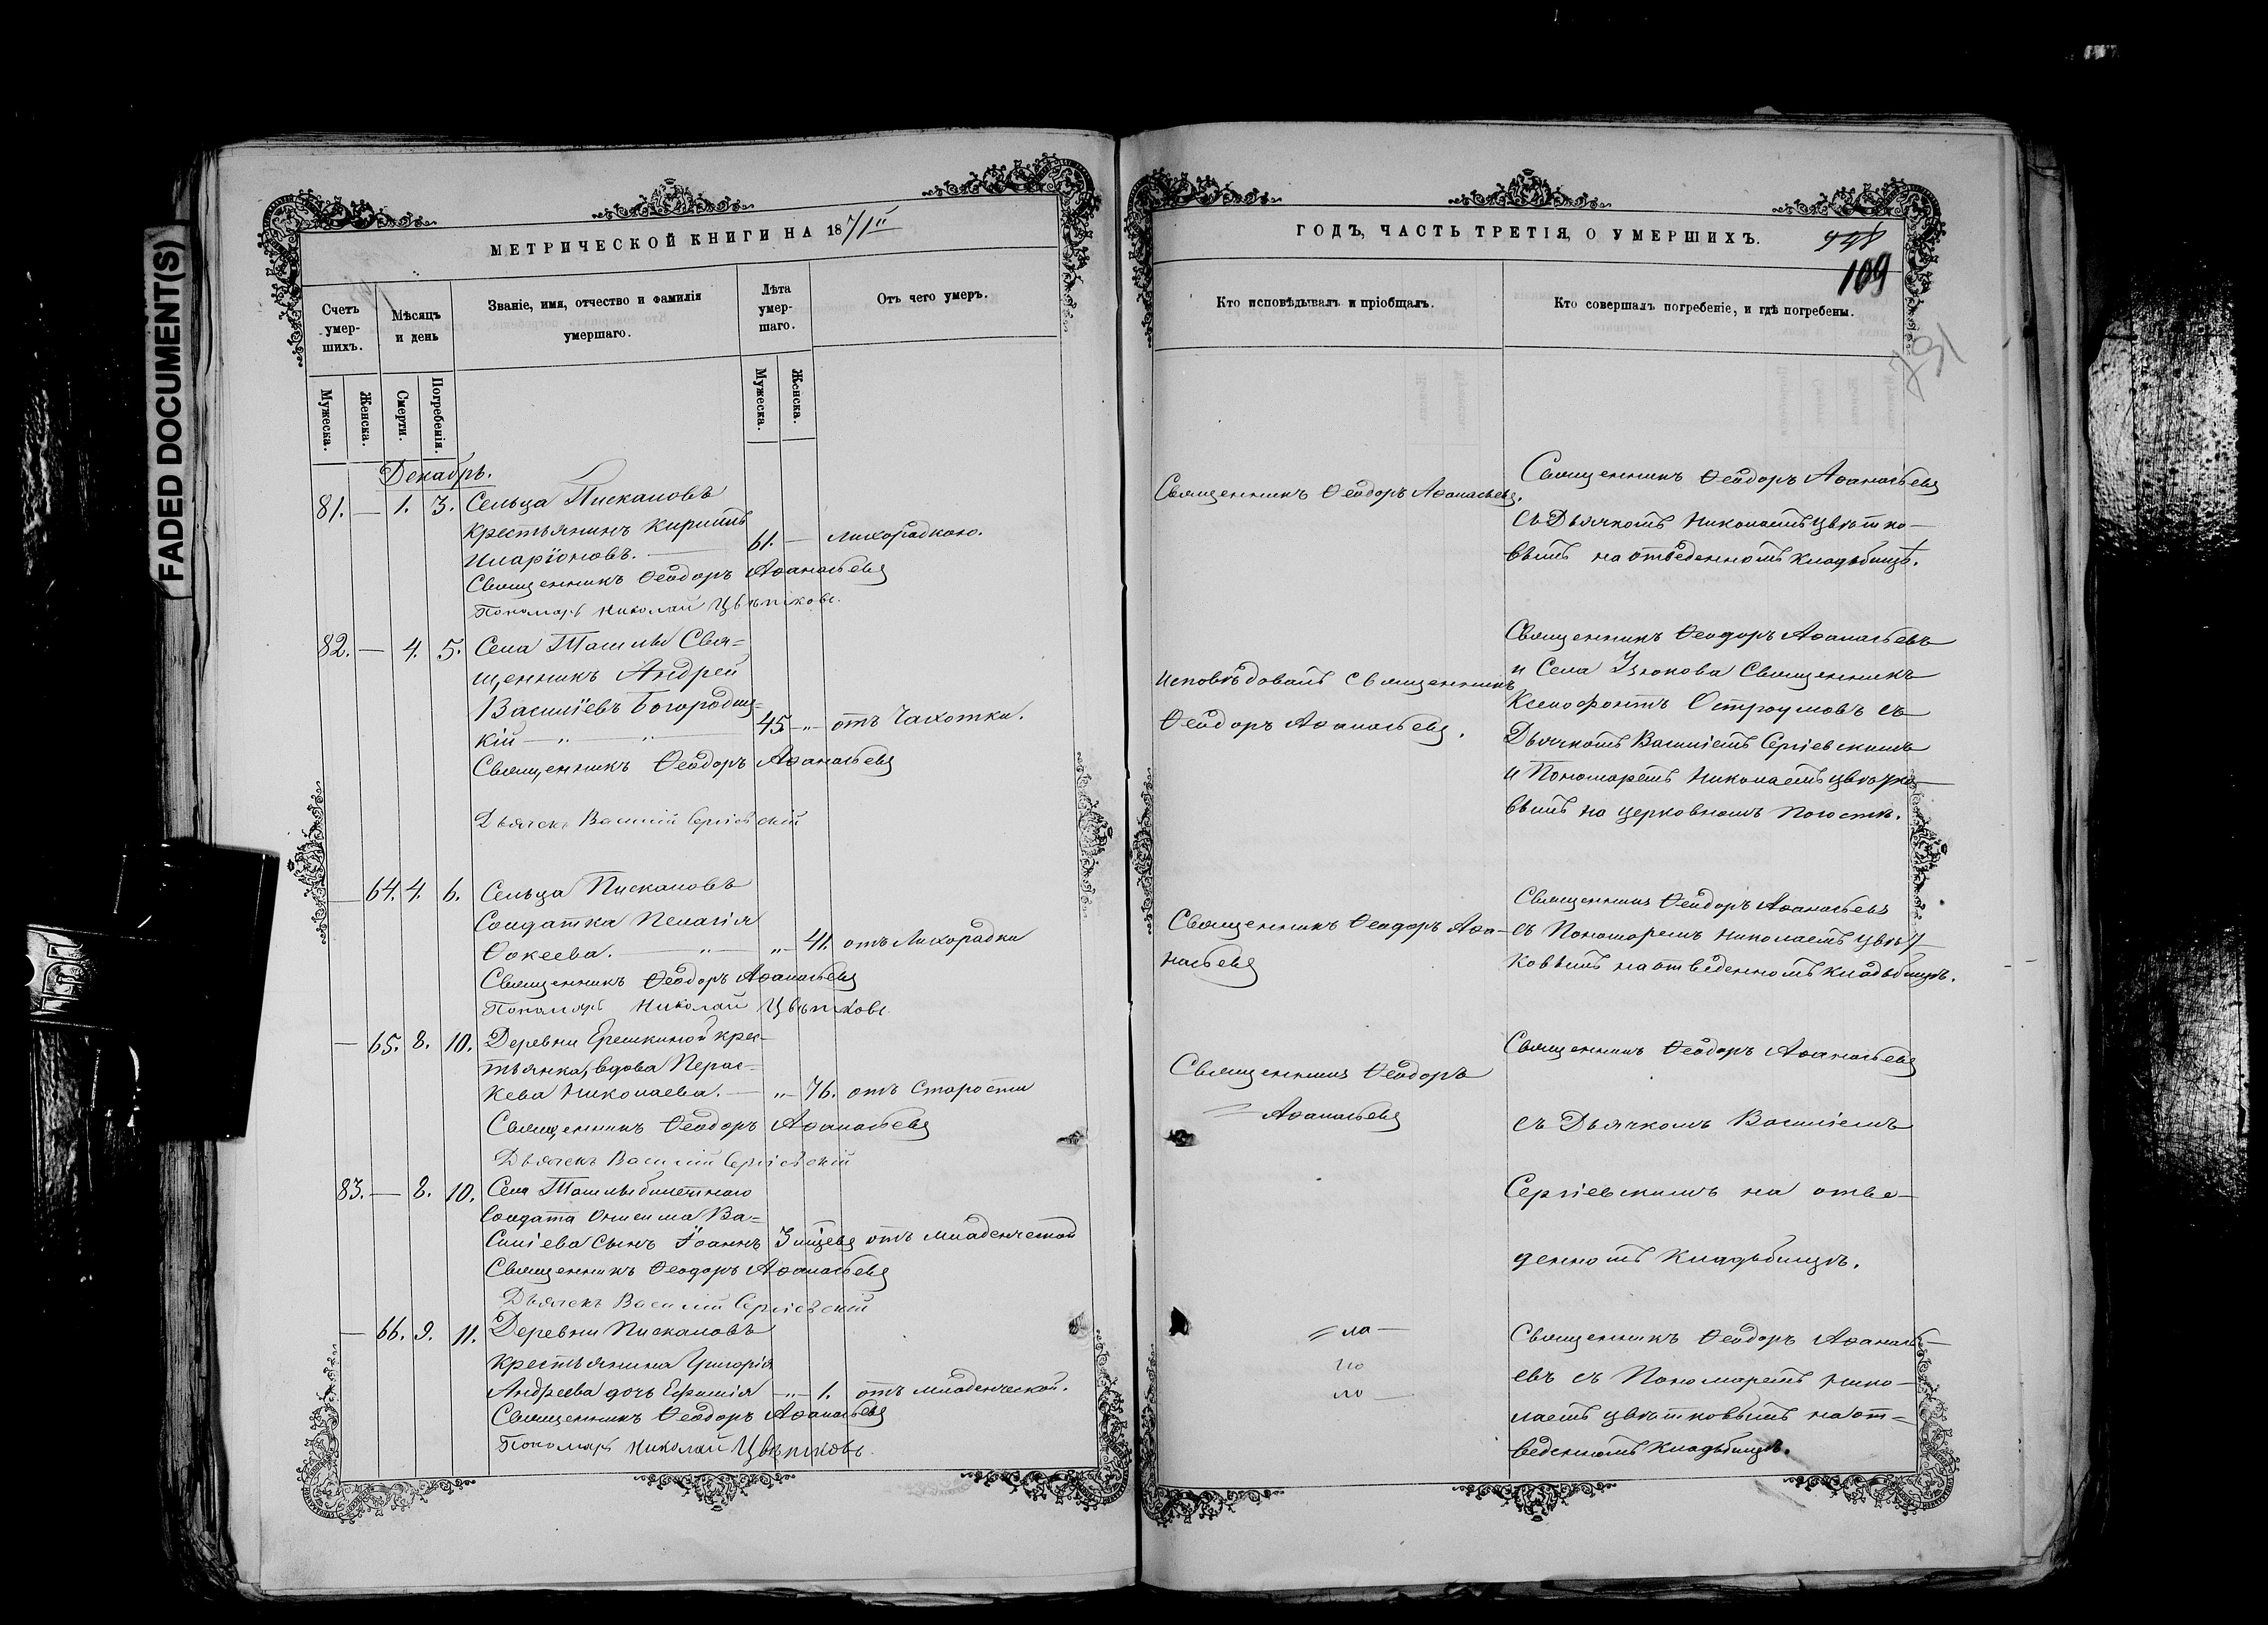 FADED DOCUMENT(S)
МЕТРИЧЕСКОЙ КНИГИ НА 1871й
Счетъ умер-шихъ.
Мѣсяцъ и день
Званіе, имя, отчество и фамилія умершаго.
Лѣта умер-шаго.
Отъ чего умеръ.
Мужеска.
Женска.
Смерти.
Погребенія.
Мужеска.
Женска.
Декабрь.
81. — 1. 3. Сельца Пискаловъ
крестьянинъ Кириллъ
Иларіоновъ. — 61. — лихорадкою.
Священникъ Ѳеодоръ Аѳанасьевъ
Пономарь Николай Цвѣтковъ.
82. — 4. 5. Села Ташлы Свя=
щенникъ Андрей
Василіевъ Богородиц=
кій — „ — „ 45 — „ — отъ Чахотки.
Священникъ Ѳеодоръ Аѳанасьевъ
Дьячекъ Василій Сергіевскій
— 64. 4. 6. Сельца Пискаловъ
Солдатка Пелагія
Ѳокеева. — „ „ — 41. отъ Лихорадки
Священникъ Ѳеодоръ Аѳанасьевъ
Пономарь Николай Цвѣтковъ.
— 65. 8. 10. Деревни Ерешкиной крес=
тьянка, вдова Перас=
кева Николаева. — „ — 76. отъ Старости
Священникъ Ѳеодоръ Аѳанасьевъ
Дьячекъ Василій Сергіевскій
83. — 8. 10. Села Ташлы билетнаго
Солдата Онисима Ва=
силіева сынъ Іоаннъ отъ младенческой
Священникъ Ѳеодоръ Аѳанасьевъ
Дьячекъ Василій Сергіевскій
— 66. 9. 11. Деревни Пискаловъ
крестьянина Григорія
Андреева дочь — „ — 1. отъ младенческой.
Священникъ Ѳеодоръ Аѳанасьевъ
Пономарь Николай Цвѣтковъ.
ГОДЪ, ЧАСТЬ ТРЕТІЯ, О УМЕРШИХЪ.
109
Кто исповѣдывалъ и пріобщалъ.
Кто совершалъ погребеніе, и гдѣ погребены.
Священникъ Ѳеодоръ Аѳанасьевъ.
Священникъ Ѳеодоръ Аѳанасьевъ
съ Дьячкомъ Николаемъ Цвѣтко—
вымъ на отведенномъ кладбищѣ.
исповѣдовалъ священникъ
Ѳеодоръ Аѳанасьевъ.
Священникъ Ѳеодоръ Аѳанасьевъ
и Села Узюкова Священникъ
Ксенофонтъ Остроумовъ съ
Дьячкомъ Василіемъ Сергіевскимъ
и Пономаремъ Николаемъ Цвѣтко—
вымъ на церковномъ погостѣ.
Священникъ Ѳеодоръ Аѳа—
насьевъ
Священникъ Ѳеодоръ Аѳанасьевъ
съ Пономаремъ Николаемъ Цвѣт
ковымъ на отведенномъ кладбищѣ.
Священникъ Ѳеодоръ
Аѳанасьевъ
Священникъ Ѳеодоръ Аѳанасьевъ
съ Дьячкомъ Василіемъ
Сергіевскимъ на отве—
денномъ кладбищѣ.
Священникъ Ѳеодоръ Аѳанась—
евъ съ Пономаремъ Нико—
лаемъ Цвѣтковымъ на от=
веденномъ кладбищѣ.